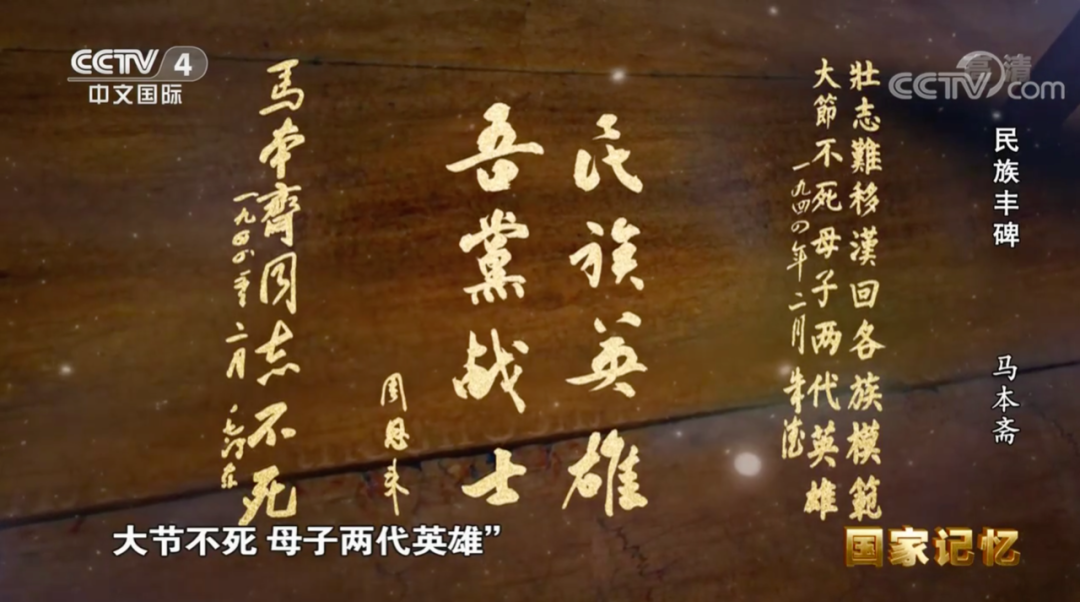 CCTV 4
中文国际
高清
CCTV.com
民族丰碑
马本斋
壯志難移漢回各族模範
大節不死母子兩代英雄
一九四四年二月 朱德
民族英雄
吾黨战士
周恩来
馬本齋同志不死
一九四四年二月 毛泽东
大节不死 母子两代英雄”
国家记忆